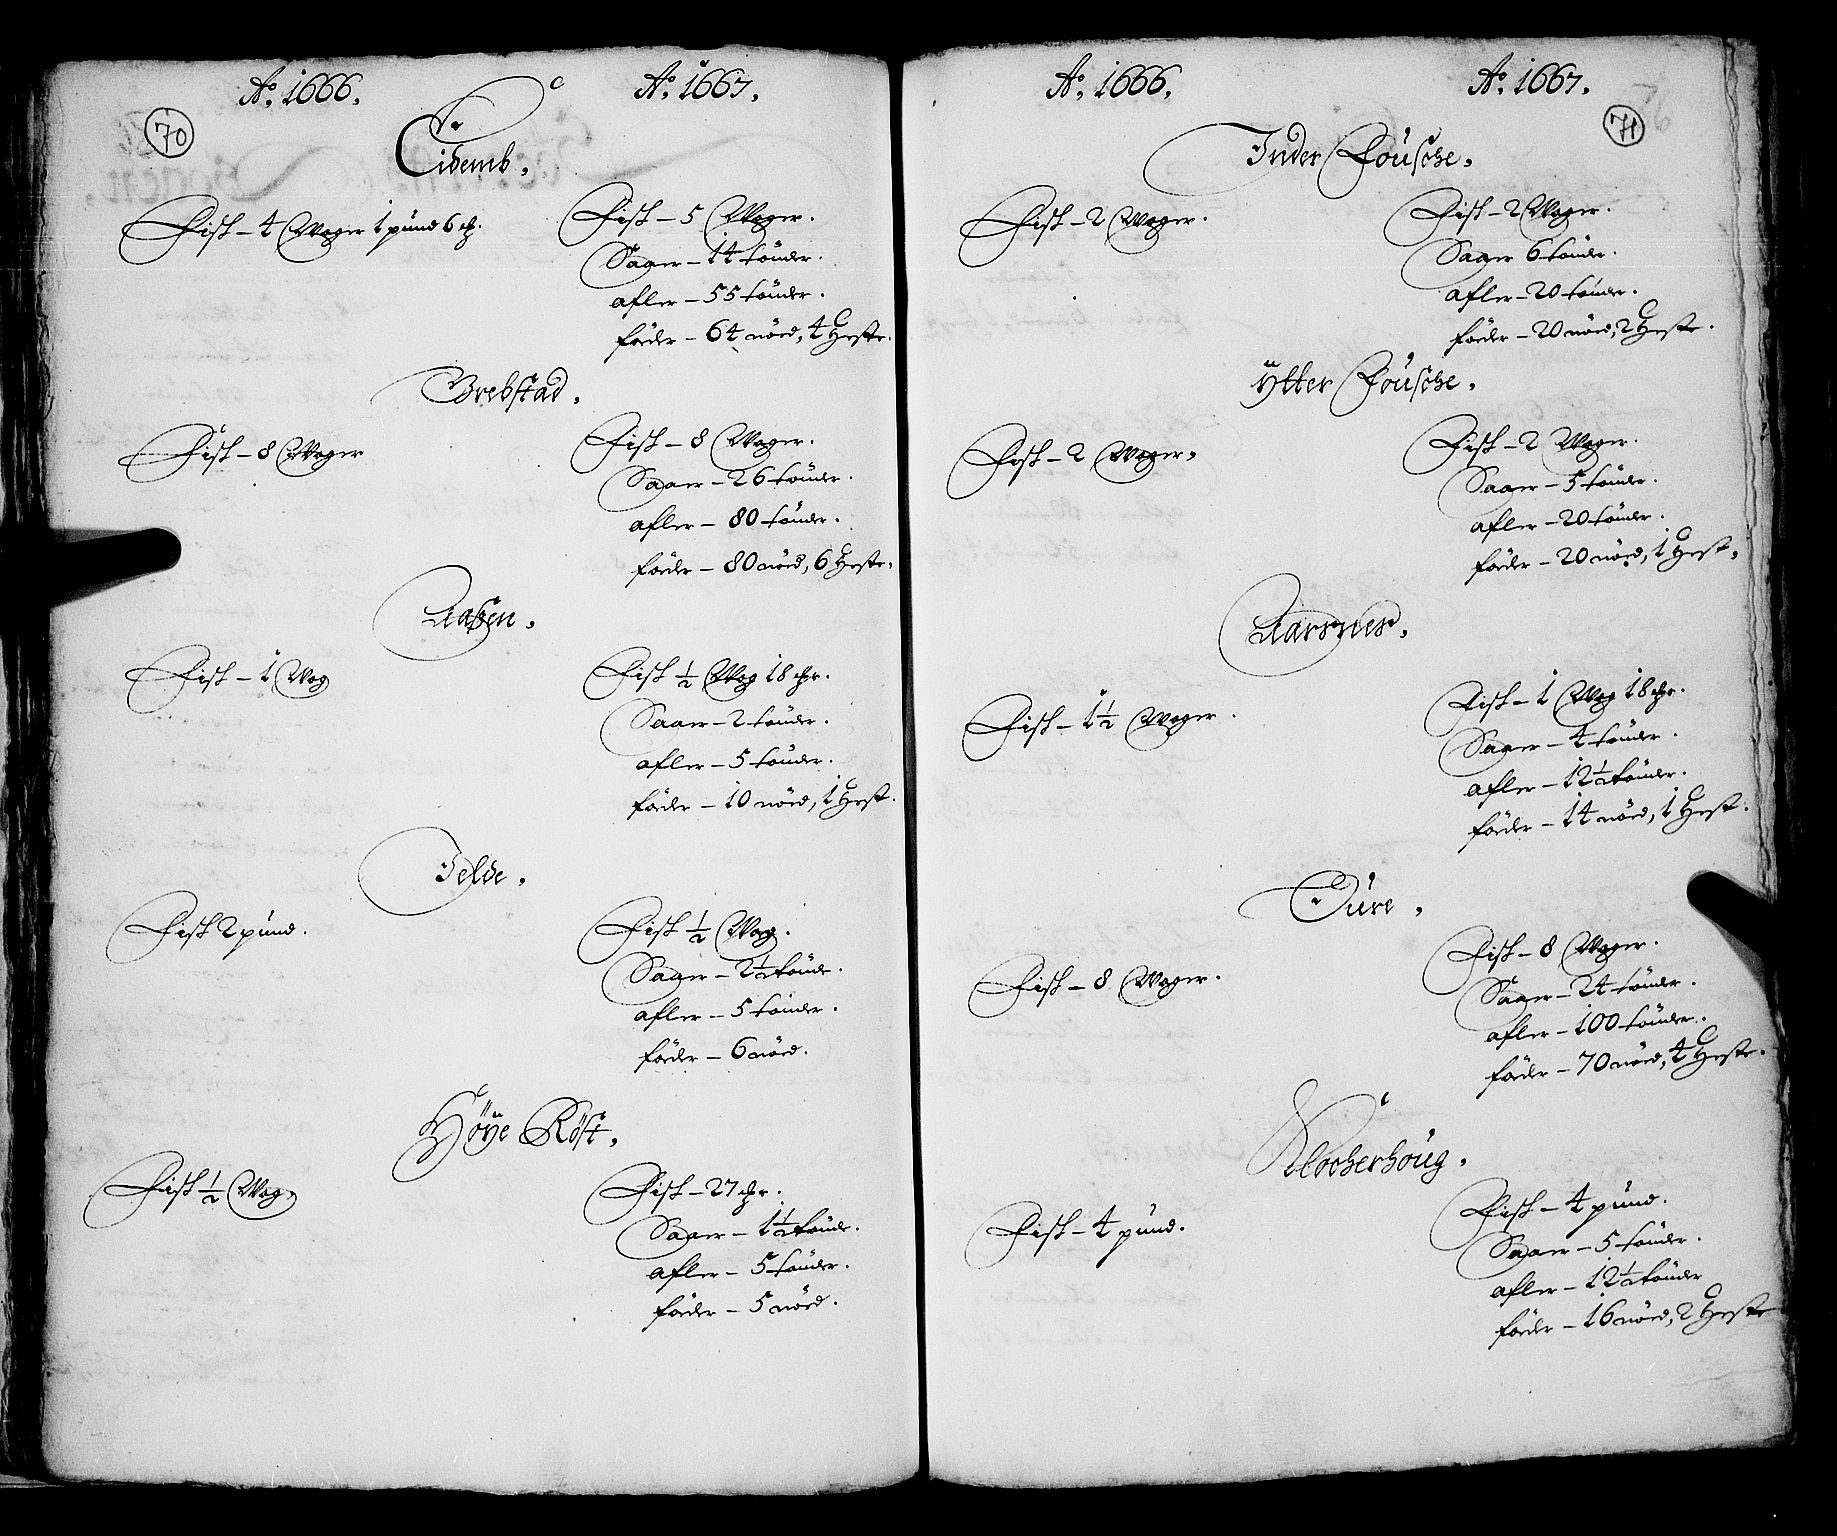 70
Ao. 1666.
Ao. 1667.
Eidemb.
Fisk – 4 Woger 1 pund 6 ch.
Fisk – 5 Woger.
Saaer – 14 tönder.
afler – 55 tönder.
föder – 64 nöed, 4 Heste.
Brebstad.
Fisk – 8 Woger
Fisk – 8 Woger.
Saaer – 26 tönder.
afler – 80 tönder.
föder – 80 nöed, 6 Heste.
Aaßen.
Fisk – 1 Wog
Fisk ½ Wog 18 chr.
Saaer – 2 tönder.
afler – 5 tönder.
föder – 10 nöed, 1 Hest.
Telde.
Fisk 2 pund.
Fisk ½ Wog.
Saaer – 2½ tönde.
afler – 5 tönder.
föder – 6 nöed.
Höye Röst.
Fisk ½ Wog.
Fisk – 27 chr.
Saaer – 1½ tönde.
afler – 5 tönder.
föder – 5 nöed.
71
Ao. 1666.
Ao. 1667.
Inder Fousche.
Fisk – 2 Woger.
Fisk – 2 Woger.
Saaer 6 tönder.
afler – 20 tönder.
föder – 20 nöed, 2 Heste.
Ytter Fousche.
Fisk – 2 Woger.
Fisk – 2 Woger.
Saaer – 5 tönder.
afler – 20 tönder.
föder – 20 nöed, 1 Hest.
Aarsnes.
Fisk – 1½ Woger.
Fisk – 1 Wog 18 chr.
Saaer – 4 tönder.
afler – 12½ tönder.
föder – 14 nöed, 1 Hest.
Öure.
Fisk – 8 Woger.
Fisk – 8 Woger.
Saaer – 24 tönder.
afler – 100 tönder.
föder – 70 nöed, 4 Heste.
Klocherhoug.
Fisk – 4 pund.
Fisk – 4 pund.
Saaer – 5 tönder.
afler – 12½ tönder
föder – 16 nöed, 2 Heste